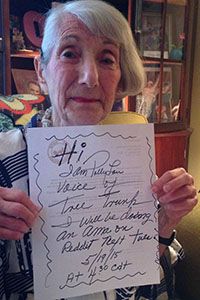 Hi
I am Polly Lou
Voice of
Tree Trunk
I will be doing
an AMA on
Reddit Next Tues
5/19/15
At 4:30 CDT